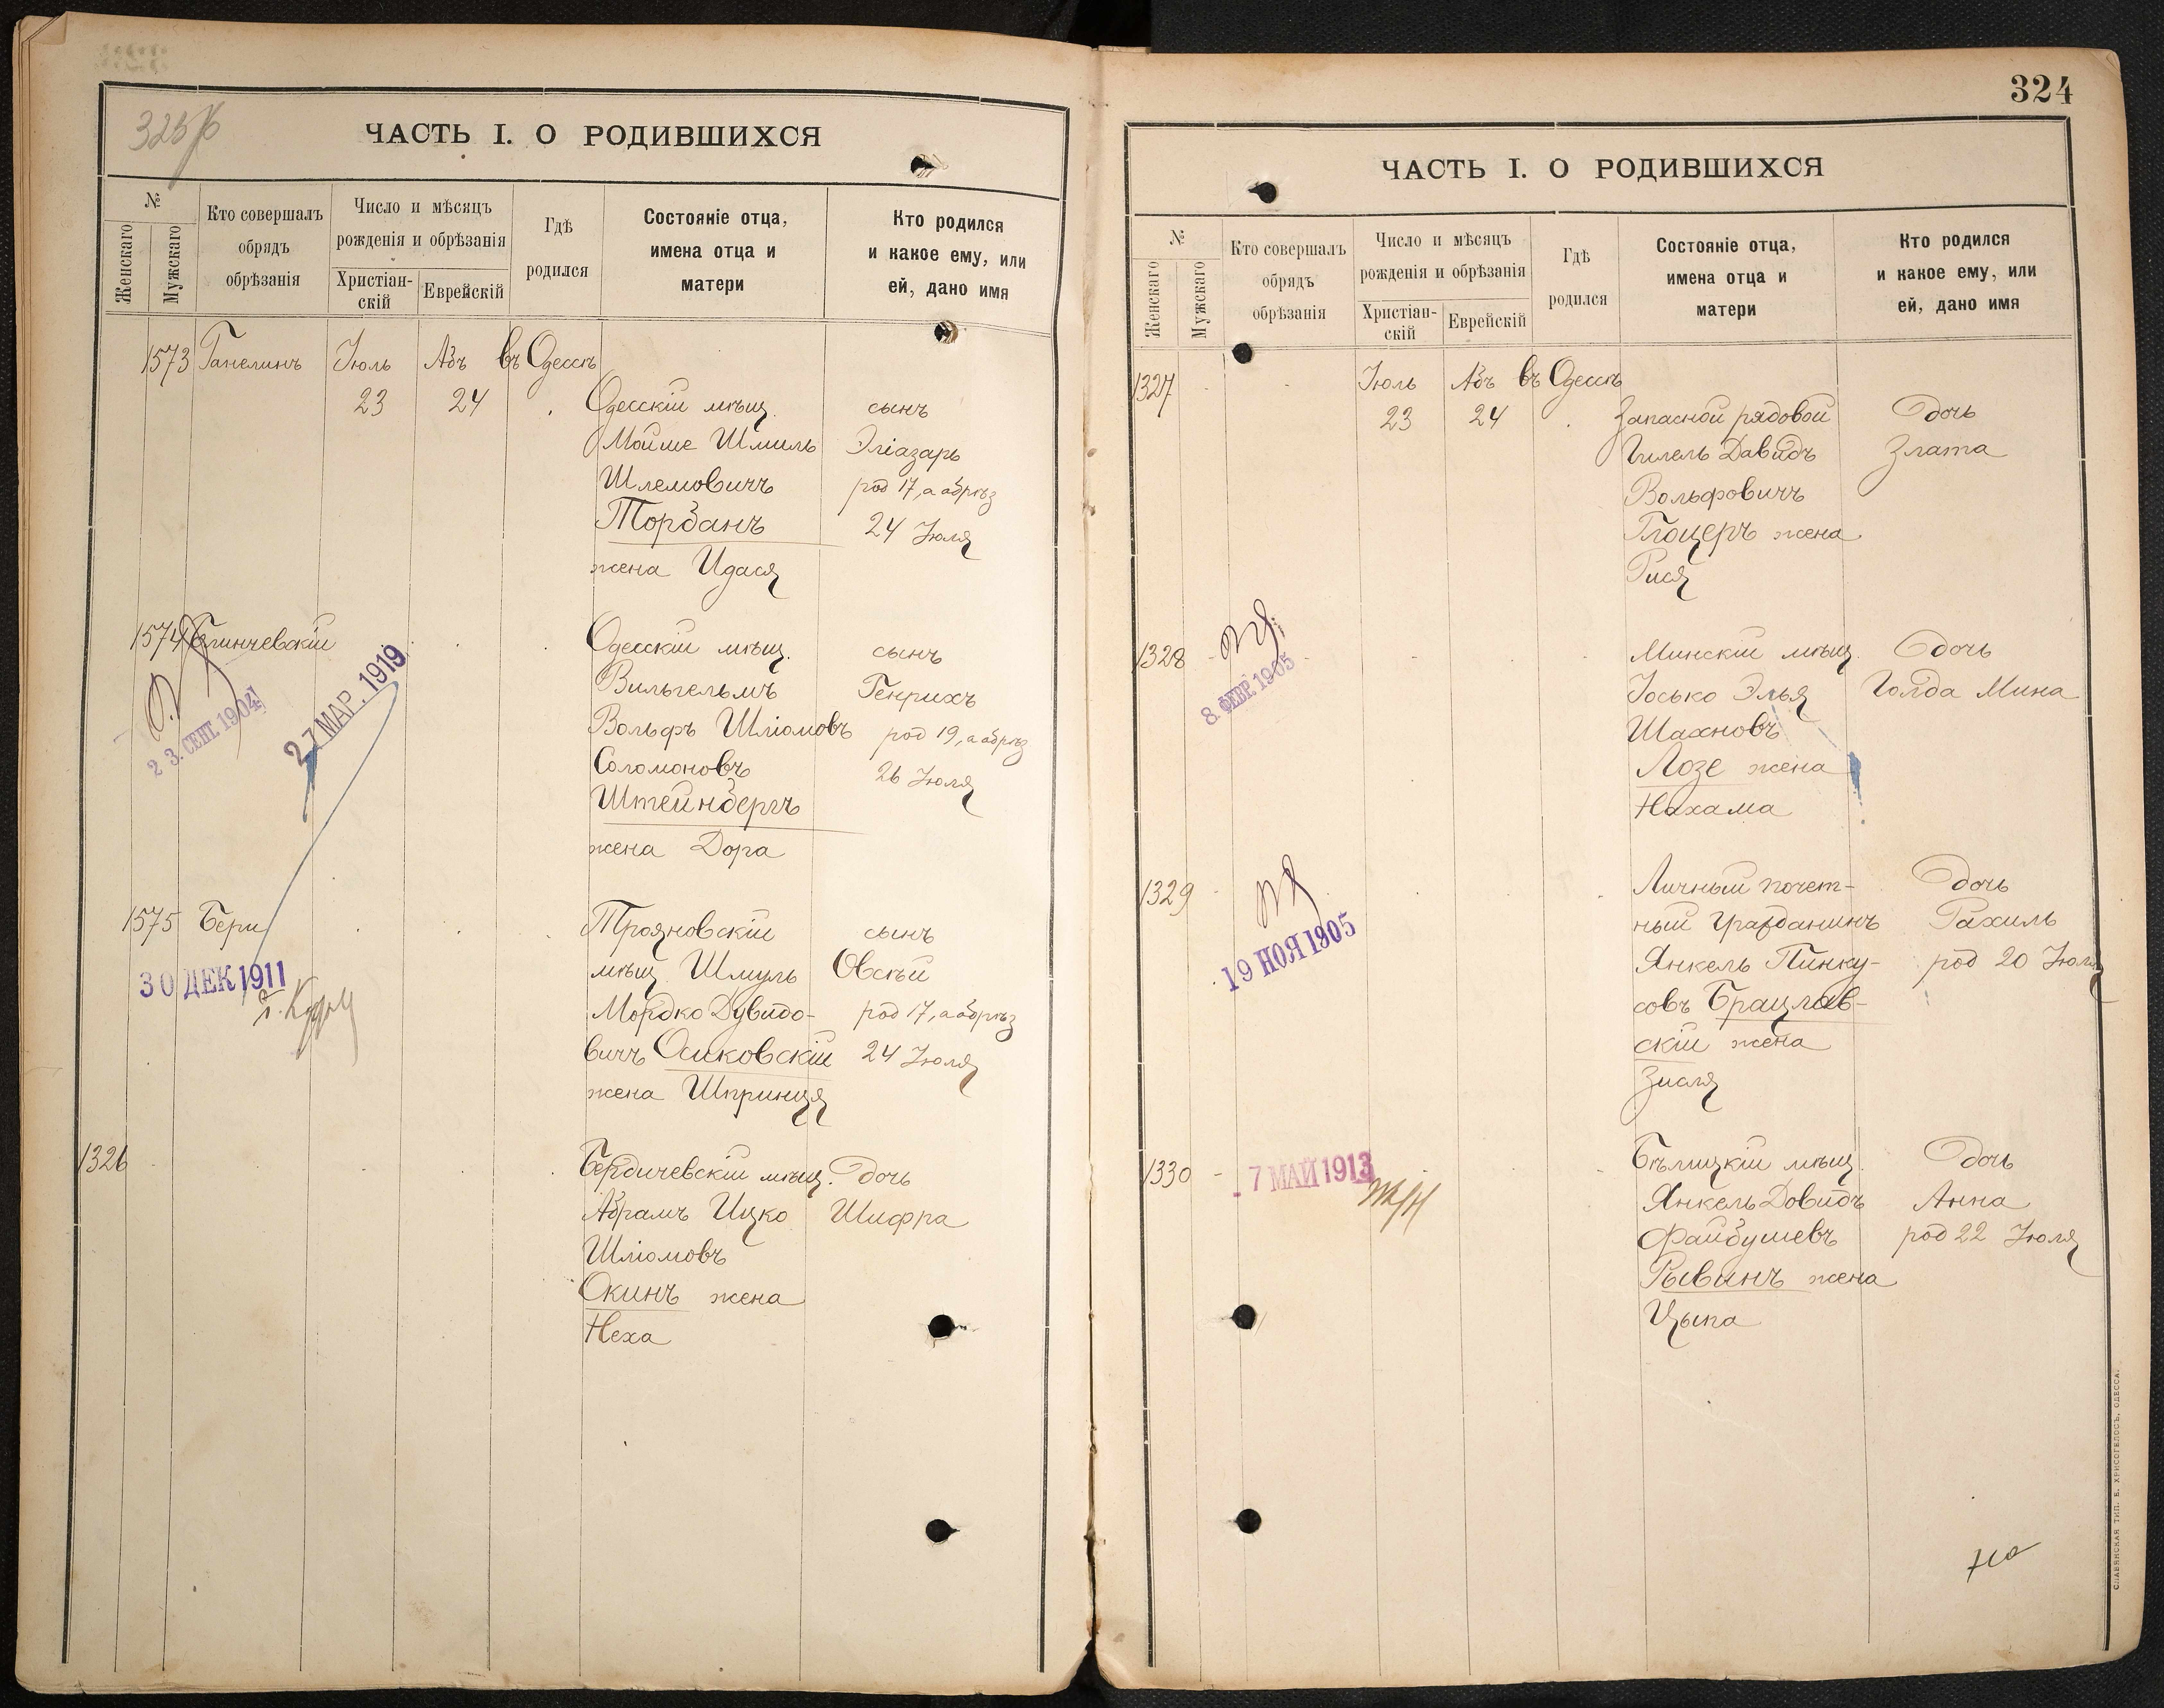 ЧАСТЬ I. О РОДИВШИХСЯ
№
Женскаго
Мужскаго
Кто совершалъ
обрядъ
обрѣзанія
Число и мѣсяцъ
рожденія и обрѣзанія
Христіан-
скій
Еврейскій
Гдѣ
родился
Состояніе отца,
имена отца и
матери
Кто родился
и какое ему, или
ей, дано имя
1573 Ганелинъ Іюль Абъ въ Одессѣ
23 24
Одесскій мѣщ. сынъ
Мойше Шмиль Эліазаръ
Шлемовичъ род 17, а обрѣз
Торбанъ 24 Іюля
жена Идася
1574
Одесскій мѣщ. сынъ
Вильгельмъ Генрихъ
Вольфъ Шліомовъ род 19, а обрѣз
Соломоновъ 26 Іюля
Штейнбергъ
жена Дора
23. СЕНТ. 1904
27 МАР. 1919
1575 Бери Трояновскій сынъ
мѣщ Шмуль Овсѣй
Мордко Дувидо- род 17, а обрѣз
вичъ Осиковскій 24 Іюля
жена Шпринця
30 ДЕК 1911
1326 Бердичевскій мѣщ. дочь
Абрамъ Ицко Шифра
Шліомовъ
Окинъ жена
Неха
324
ЧАСТЬ I. О РОДИВШИХСЯ
№
Женскаго
Мужскаго
Кто совершалъ
обрядъ
обрѣзанія
Число и мѣсяцъ
рожденія и обрѣзанія
Христіан-
скій
Еврейскій
Гдѣ
родился
Состояніе отца,
имена отца и
матери
Кто родился
и какое ему, или
ей, дано имя
1327 Іюль Абъ въ Одессѣ
23 24 Запасной рядовой дочь
Гилель Давидъ Злата
Вольфовичъ
Глоцеръ жена
Рися
1328 Минскій мѣщ. дочь
Іосько Элья Голда Мина
Шахновъ
Лозе жена
Нахама
8 ФЕВР. 1905
1329 Личный почет- дочь
ный гражданинъ Рахиль
Янкель Пинку- род 20 Іюля
совъ Брацлав-
скій жена
Зисля
19 НОЯ 1905
1330 Бѣлицкій мѣщ. дочь
Янкель Довидъ Анна
Файбушевъ род 22 Іюля
Рывинъ жена
Цыпа
7 МАЙ 1913
СЛАВЯНСКАЯ ТИП. Е. ХРИСОГЕЛОСЪ, ОДЕССА.